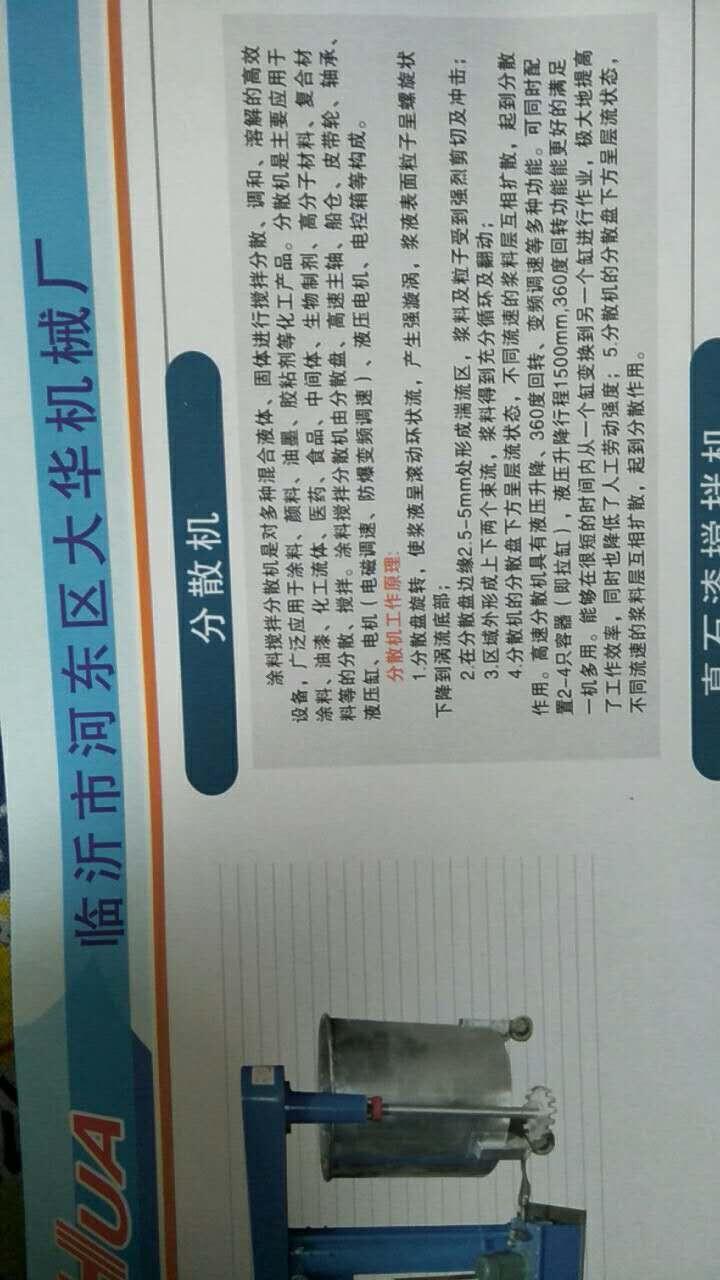 HUA
临沂市河东区大华机械厂
分散机
涂料搅拌分散机是对多种混合液体、固体进行搅拌分散、调和、溶解的高效
设备，广泛应用于涂料、颜料、油墨、胶粘剂等化工产品。分散机是主要应用于
涂料、油漆、化工流体、医药、食品、中间体、生物制剂、高分子材料、复合材
料等的分散、搅拌。涂料搅拌分散机由分散盘、高速主轴、船仓、皮带轮、轴承、
液压缸、电机（电磁调速、防爆变频调速）、液压电机、电控箱等构成。
分散机工作原理:
1.分散盘旋转，使浆液呈滚动环状流，产生强漩涡，浆液表面粒子呈螺旋状
下降到涡流底部；
2.在分散盘边缘2.5-5mm处形成湍流区，浆料及粒子受到强烈剪切及冲击；
3.区域外形成上下两个束流，浆料得到充分循环及翻动；
4.分散机的分散盘下方呈层流状态，不同流速的浆料层互相扩散，起到分散
作用。高速分散机具有液压升降、360度回转、变频调速等多种功能。可同时配
置2-4只容器（即拉缸），液压升降行程1500mm,360度回转功能能更好的满足
一机多用。能够在很短的时间内从一个缸变换到另一个缸进行作业，极大地提高
了工作效率，同时也降低了人工劳动强度；5.分散机的分散盘下方呈层流状态，
不同流速的浆料层互相扩散，起到分散作用。
真石漆搅拌机